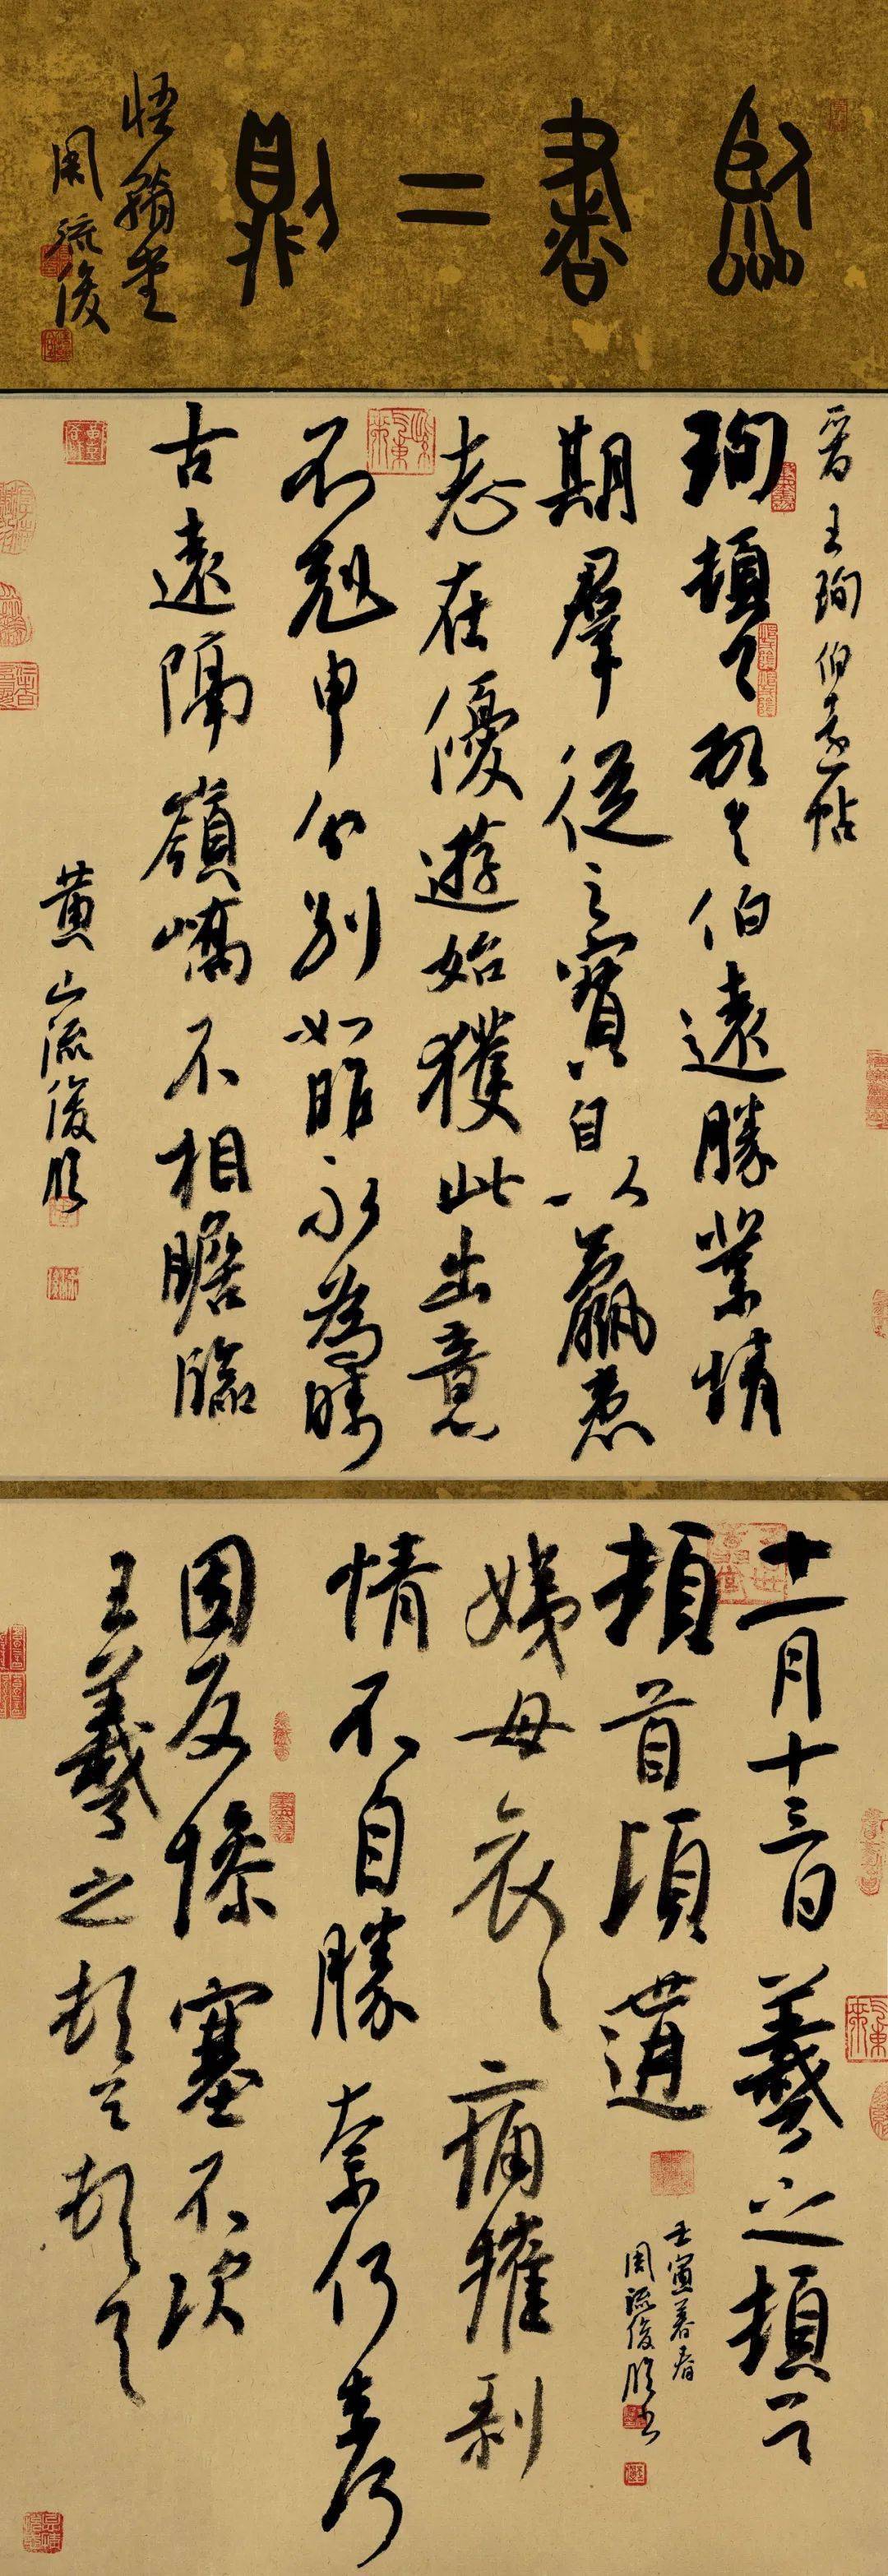 臨書二則
悟翰堂
周流俊
晋王珣伯遠帖
珣頓首頓首伯遠勝業情
期羣從之寶自以羸患
志在優遊始獲此出意
不剋申分別如昨永為疇
古遠隔嶺嶠不相瞻臨
黄山流俊臨
十一月十三日羲之頓首
頓首頃遘
壬寅暮春
周流俊臨書
姨母哀〻痛摧剥
情不自勝奈何奈何
因反慘塞不次
王羲之頓首頓首